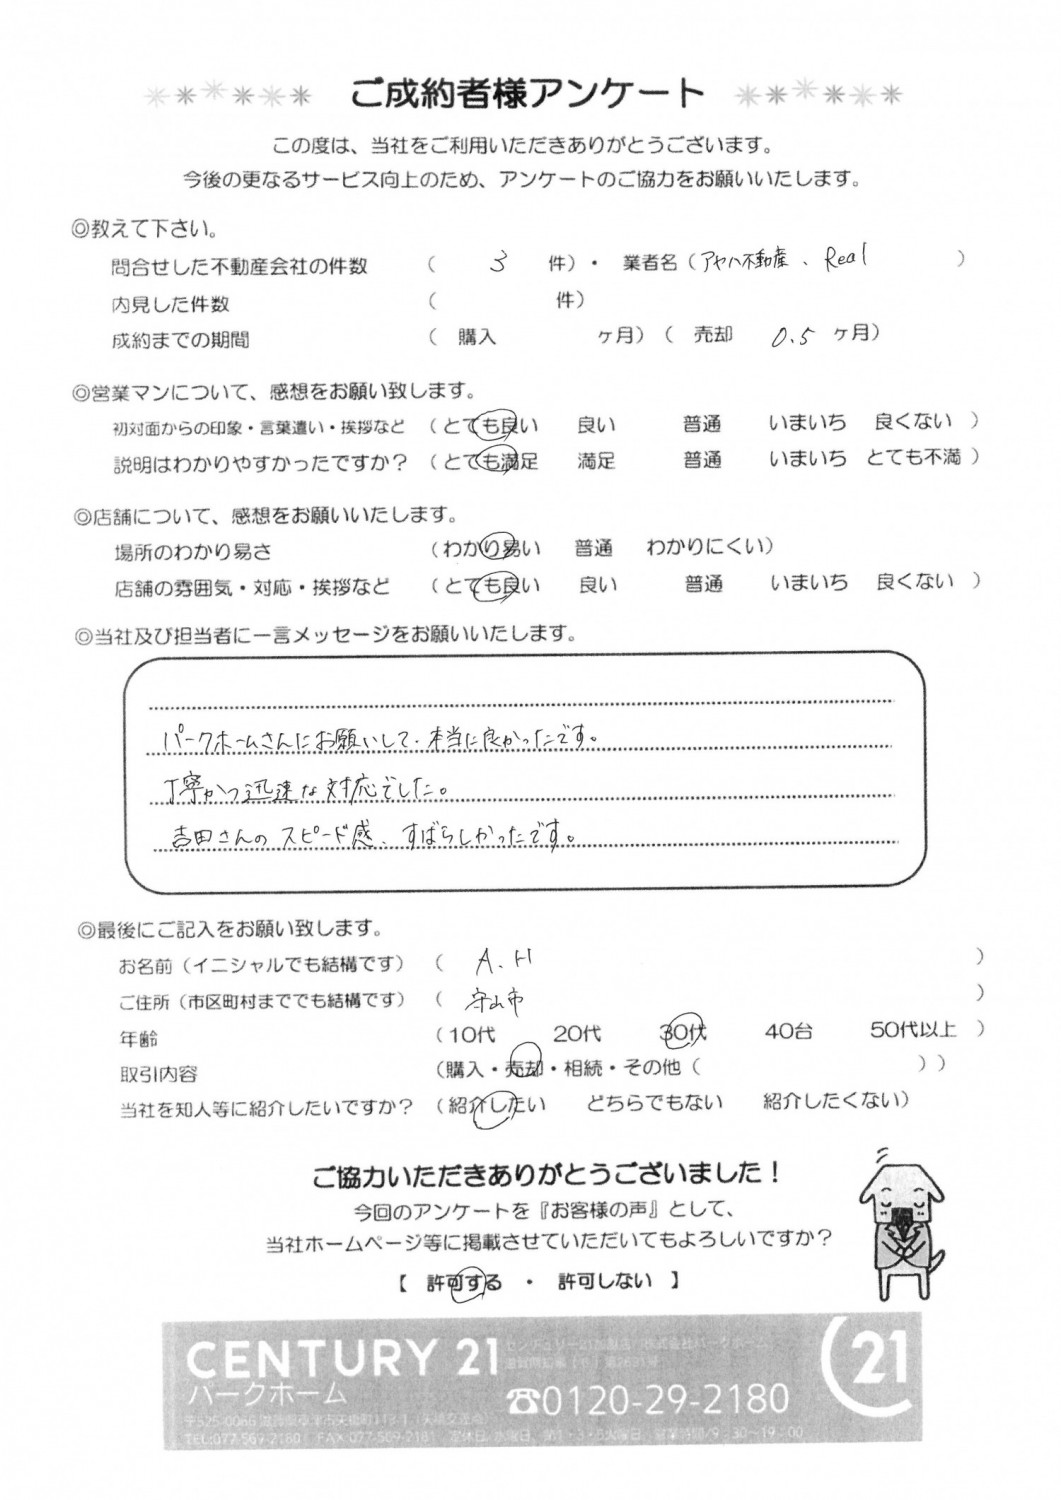 ご成約者様アンケート
この度は、当社をご利用いただきありがとうございます。
今後の更なるサービス向上のため、アンケートのご協力をお願いいたします。
◎教えて下さい。
問合せした不動産会社の件数 ( 3 件)・ 業者名(アヤハ不動産、Real )
内見した件数 ( 件)
成約までの期間 ( 購入 ヶ月) ( 売却 0.5 ヶ月)
◎営業マンについて、感想をお願い致します。
初対面からの印象・言葉遣い・挨拶など (とても良い 良い 普通 いまいち 良くない )
説明はわかりやすかったですか? (とても満足 満足 普通 いまいち とても不満 )
◎店舗について、感想をお願いいたします。
場所のわかり易さ (わかり易い 普通 わかりにくい)
店舗の雰囲気・対応・挨拶など (とても良い 良い 普通 いまいち 良くない )
◎当社及び担当者に一言メッセージをお願いいたします。
パークホームさんにお願いして、本当に良かったです。
丁寧かつ迅速な対応でした。
吉田さんのスピード感、すばらしかったです。
◎最後にご記入をお願い致します。
お名前(イニシャルでも結構です) ( A.H )
ご住所(市区町村まででも結構です) ( 守山市 )
年齢 (10代 20代 30代 40台 50代以上 )
取引内容 (購入・売却・相続・その他( ))
当社を知人等に紹介したいですか? (紹介したい どちらでもない 紹介したくない)
ご協力いただきありがとうございました!
今回のアンケートを『お客様の声』として、
当社ホームページ等に掲載させていただいてもよろしいですか?
【 許可する ・ 許可しない 】
CENTURY 21 センチュリー21加盟店 株式会社パークホーム
パークホーム
☎0120-29-2180
21
TEL:077-569-2180 FAX:077-569-2181 定休日/水曜日、第1・3・5火曜日 営業時間/9:30〜19:00